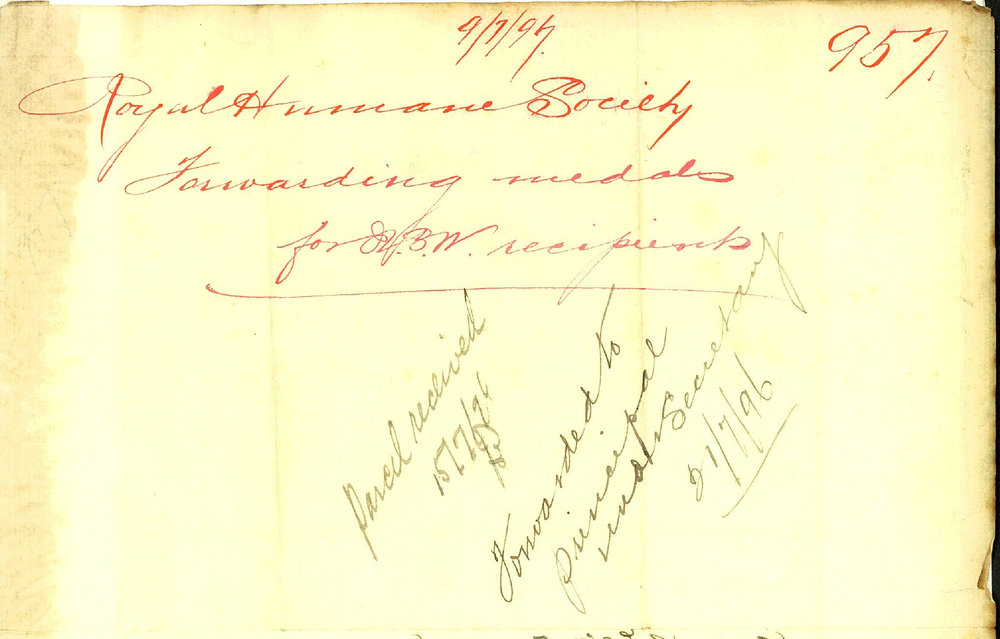 9/7/97.
957.
Royal Humane Society
Forwarding medals
for N.B.W. recipients
Parcel received
15/7/96
Forwarded to
principal
under Secretary
21/7/96